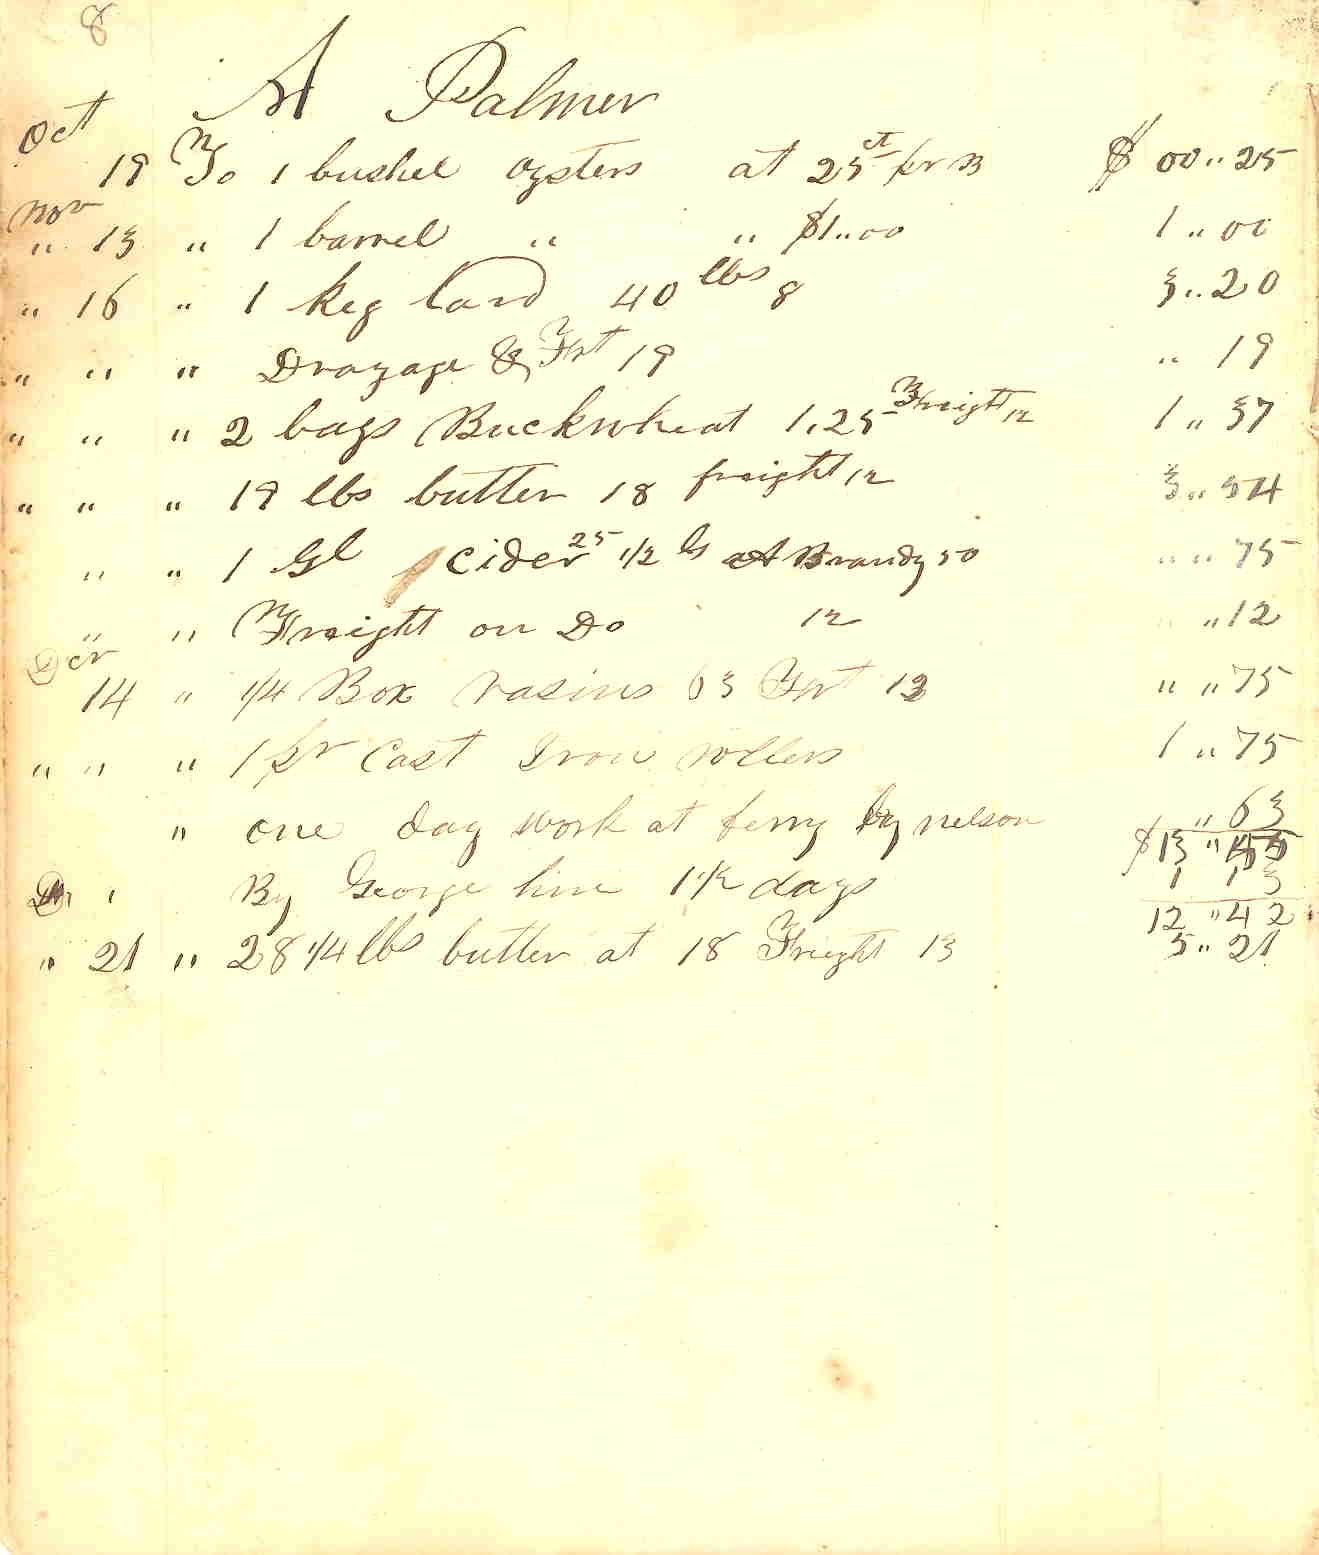 8
A Palmer
Oct
19 To 1 bushel oysters at 25 ct pr B $ 00 .. 25
Nov
" 13 " 1 barrel " " $1..00 1 .. 00
" 16 " 1 Keg Lard 40 lbs 8 3..20
" " " Drayage & Frt 19 .. 19
" " " 2 bags Buckwheat 1.25 Freight 12 1 " 37
" " " 19 lbs butter 18 freight 12 3..54
" " 1 Gl Cider 25 1/2 G A Brandy 50 " " 75
" " Freight on Do 12 " 12
Dcr
14 " 1/4 Box rasins 63 Frt 12 " " 75
" " " 1 pr Cast Iron rollers 1 " 75
" one day work at ferry by nelson " 63
$13 " 55
By George hire 1 1/2 days 1 13
12 " 42
" 21 " 28 1/4 lbs butter at 18 Frieght 13 5 " 21